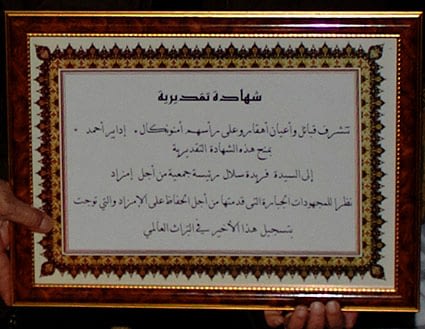 شهادة تقديرية
تتشرف قبائل وأعيان أهقار وعلى رأسهم أمنوكال • إدابير أحمد •
بمنح هذه الشهادة التقديرية
إلى السيدة فريدة سلال رئيسة جمعية من أجل إمزاد
نظرا للمجهودات الجبارة التي قدمتها من أجل الحفاظ على الإمزاد والتي توجت
بتسجيل هذا الأخير في التراث العالمي